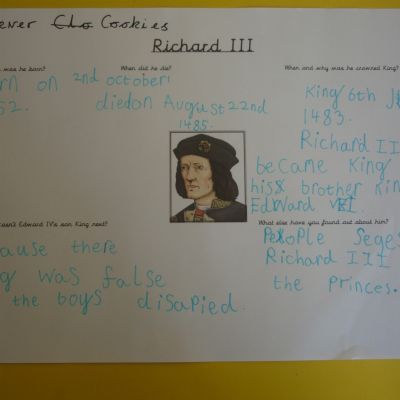 ever Clo Cookies
Richard III
was he born?
When did he die?
When and why was he crowned King?
rn on 2nd october
52.
diedon August 22nd
1485.
King 6th J
1483.
Richard II
became King
his brother Kin
Edward
sn't Edward IV's son King next?
What else have you found out about him?
ause there
g was false
the boys disapied.
PeoPle Seges
Richard III
the princes.